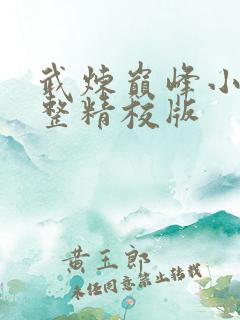 武炼巅峰小
整精校版
黄玉郎
未经同意禁止转载